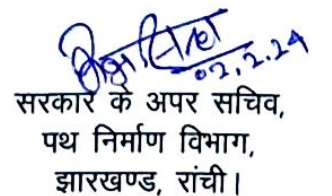 02.2.24
सरकार के अपर सचिव,
पथ निर्माण विभाग,
झारखण्ड, रांची।